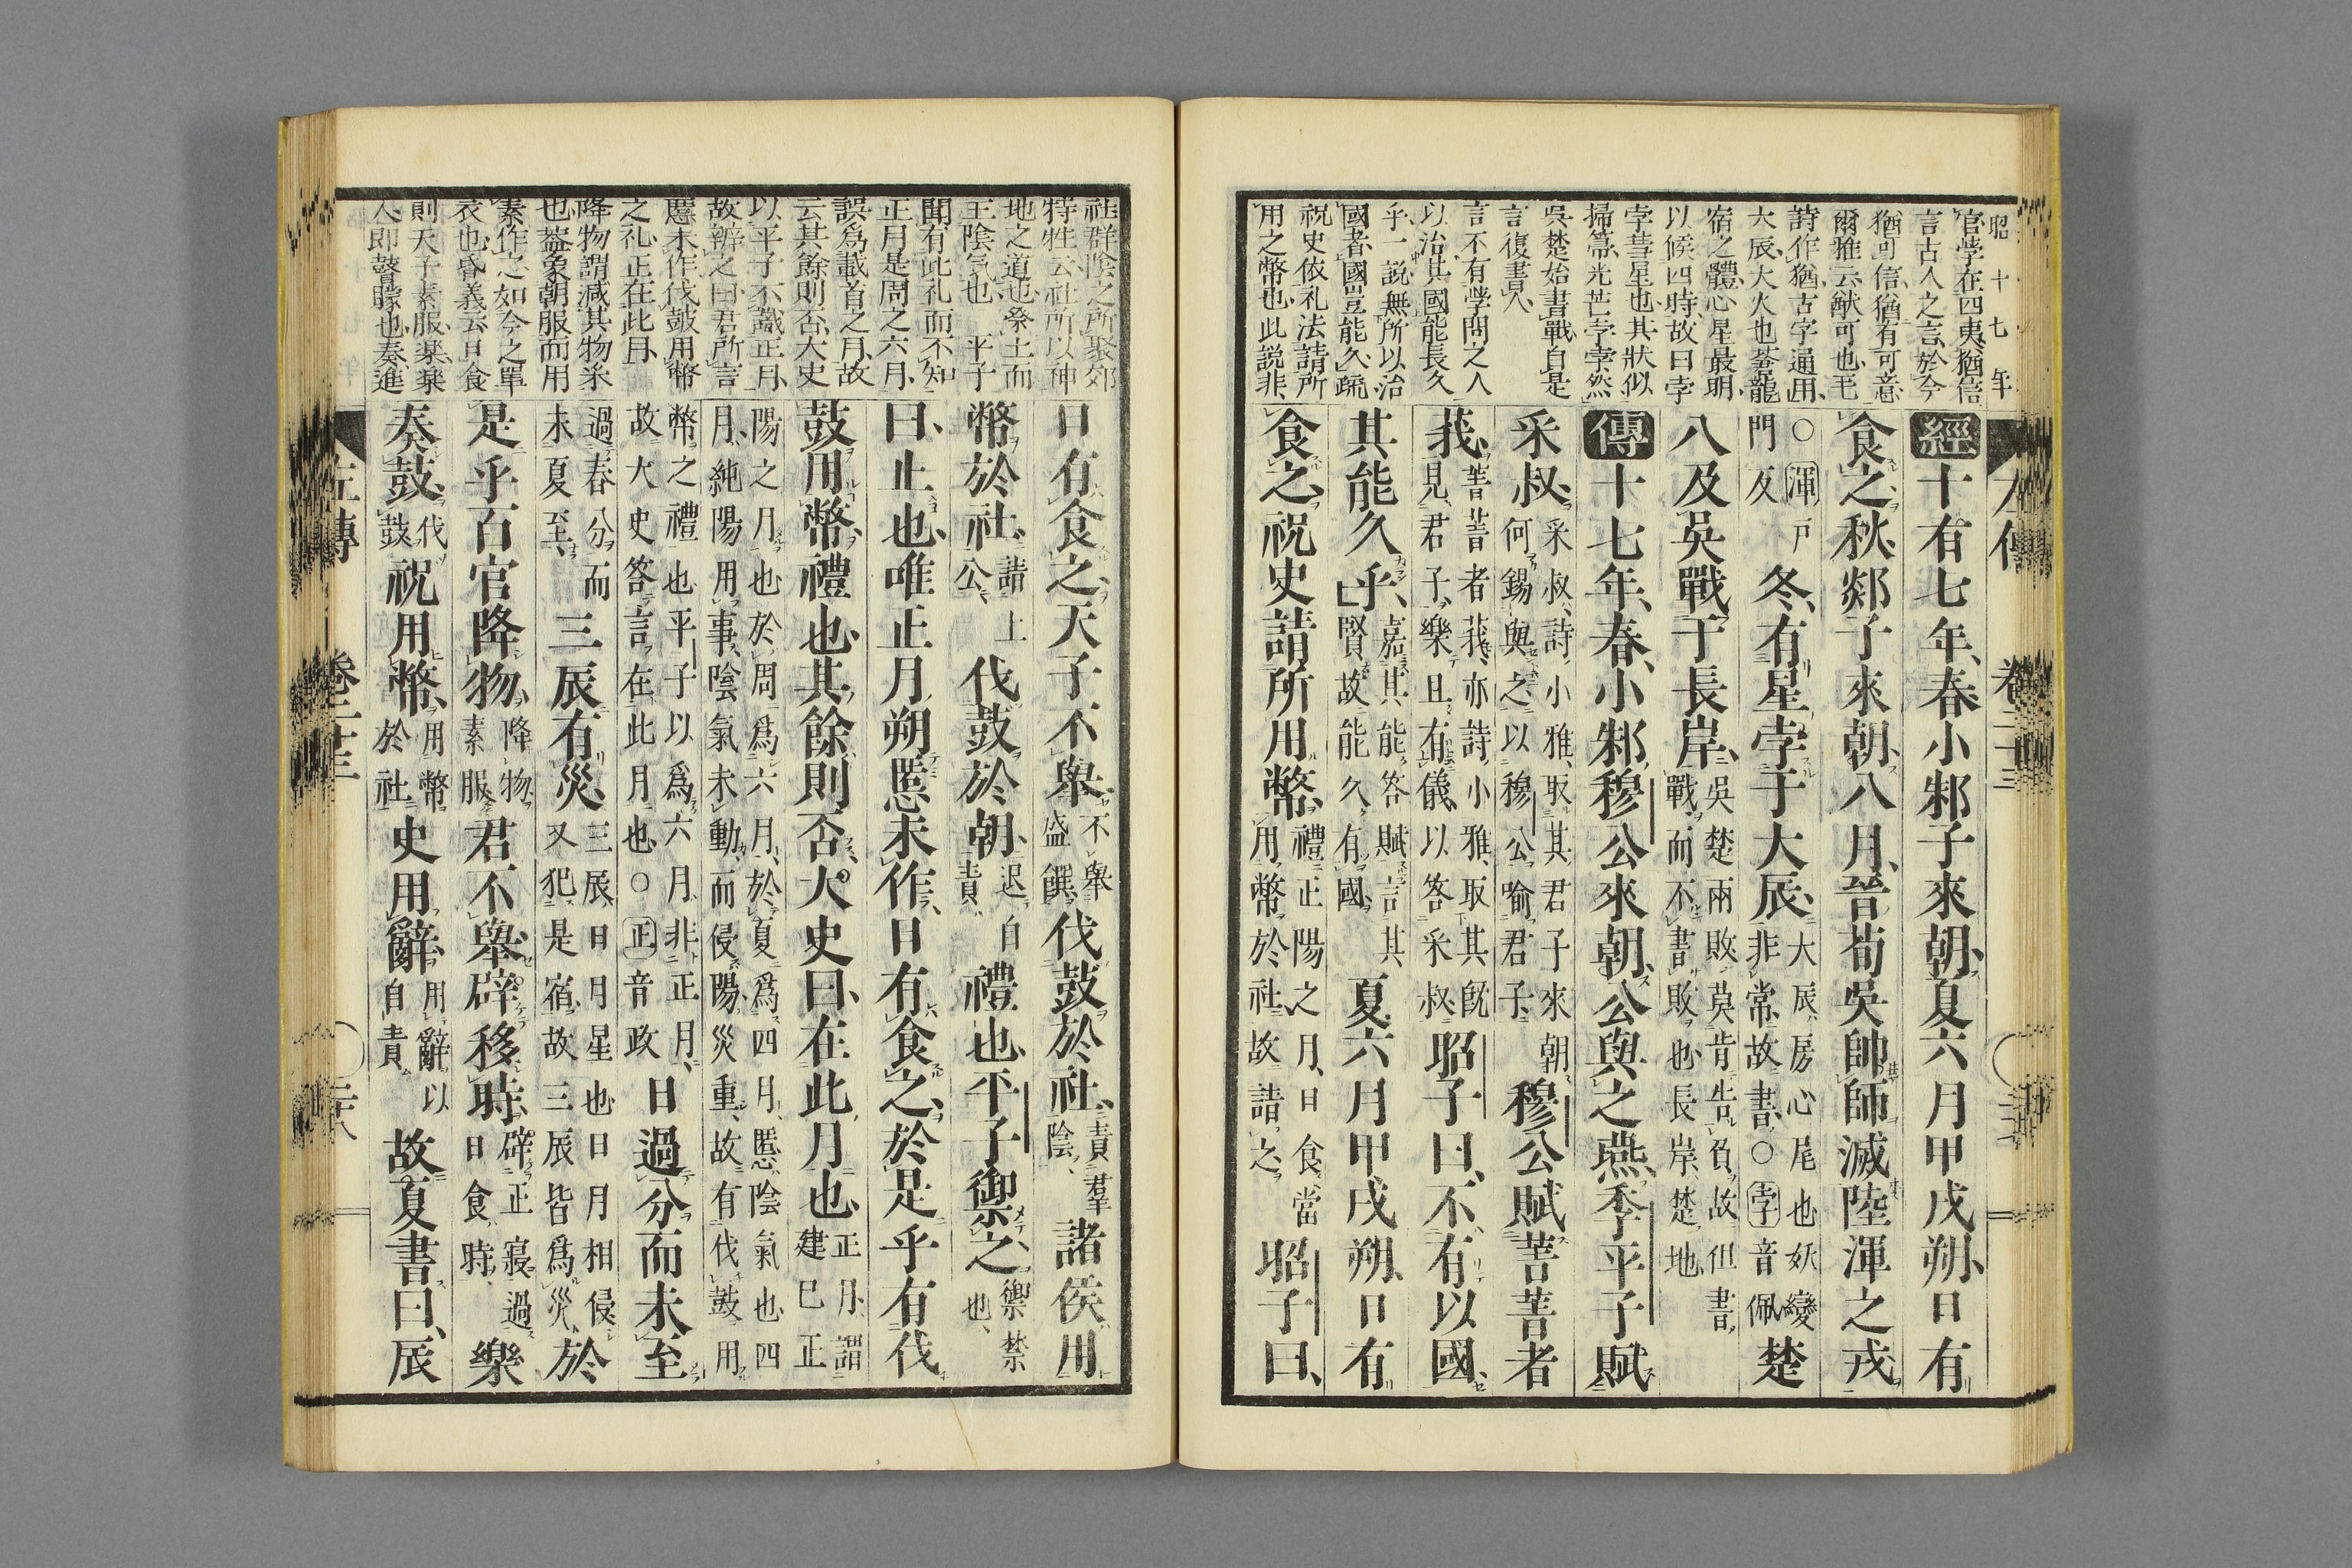 昭十七年
官学在四夷猶信
言古人之言於今
猶可信猶有可意
爾雅云猷可也毛
詩作猶古字通用
大辰大火也蒼龍
宿之體心星最明
以候四時故曰孛
孛彗星也其狀似
掃箒光芒孛孛然
吳楚始書戰自是
言復書人
言不有學問之人
以治其國能長久
乎一說無所以治
國者國豈能久疏
祝史依礼法請所
用之幣也此說非
左傳 卷二十三
經十有七年春小邾子來朝夏六月甲戌朔日有
食之秋郯子來朝八月晉荀吳帥師滅陸渾之戎
○渾戸門反冬有星孛于大辰大辰房心尾也妖變非常故書○孛音佩楚
人及吳戰于長岸吳楚兩敗莫肯告負故但書戰而不書敗也長岸楚地
傳十七年春小邾穆公來朝公與之燕季平子賦
采叔采叔詩小雅取其君子來朝何錫與之以穆公喻君子穆公賦菁菁者
莪菁菁者莪亦詩小雅取其旣見君子樂且有儀以答采叔昭子曰不有以國
其能久乎嘉其能答賦言其賢故能久有國夏六月甲戌朔日有
食之祝史請所用幣禮正陽之月日食當用幣於社故請之昭子曰
社群陰之所聚郊
特牲云社所以神
地之道也祭土而
主陰気也 平子
聞有此礼而不知
正月是周之六月
誤爲載首之月故
云其餘則否大史
以平子不識正月
故辨之曰君所言
慝未作伐鼓用幣
之礼正在此月
降物謂減其物采
也葢象朝服而用
素作之如今之單
衣也昏義云日食
則天子素服樂樂
人即瞽矇也奏進
日有食之天子不舉不舉盛饌伐鼓於社責羣陰諸侯用
幣於社請上公伐鼓於朝退自責禮也平子禦之禦禁也
曰止也唯正月朔慝未作日有食之於是乎有伐
鼓用幣禮也其餘則否大史曰在此月也正月謂建巳正
陽之月也於周爲六月於夏爲四月慝陰氣也四月純陽用事陰氣未動而侵陽災重故有伐鼓用
幣之禮也平子以爲六月非正月故大史答言在此月也○正音政日過分而未至
過春分而未夏至三辰有災三辰日月星也日月相侵又犯是宿故三辰皆爲災於
是乎百官降物降物素服君不舉辟移時辟正寢過日食時樂
奏鼓伐鼓祝用幣用幣於社史用辭用辭以自責故夏書曰辰
左傳 卷二十三 二十八